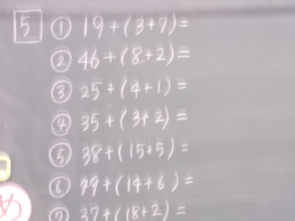 5 ① 19+(3+7)=
② 46+(8+2)=
③ 25+(4+1)=
④ 35+(3+2)=
⑤ 38+(15+5)=
⑥ 49+(14+6)=
⑦ 37+(18+2)=
め